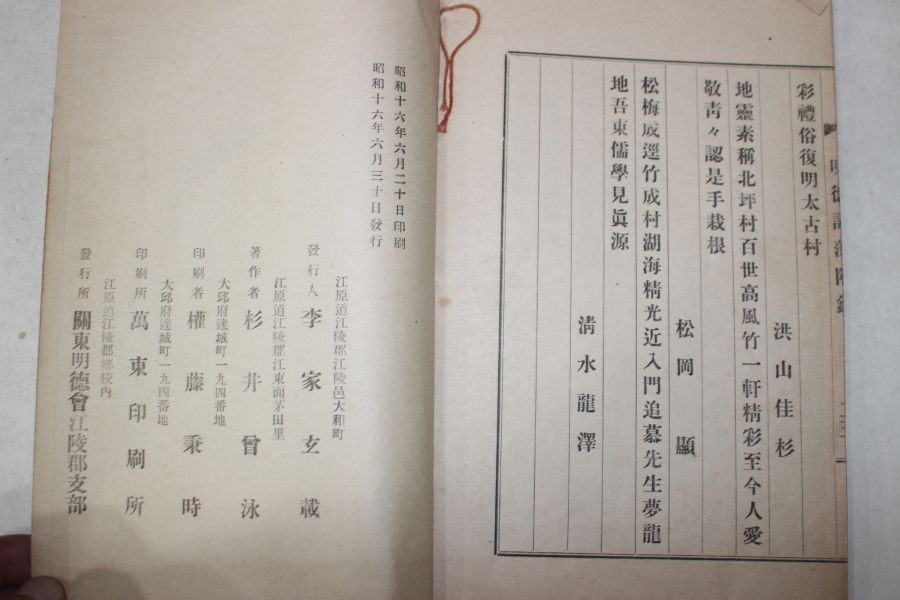 彩禮俗復明太古村
洪山佳杉
地靈素稱北坪村百世高風竹一軒精彩至今人愛
敬靑々認是手栽根
松岡顯
松梅成逕竹成村湖海精光近入門追慕先生夢龍
地吾東儒學見眞源
淸水龍澤
昭和十六年六月二十日印刷
昭和十六年六月三十日發行
江原道江陵郡江陵邑大和町
發行人 李家玄載
江原道江陵郡江東面茅田里
著作者 杉井曾泳
大邱府達城町一九四番地
印刷者 權藤秉時
大邱府達城町一九四番地
印刷所 萬東印刷所
江原道江陵郡鄕校內
發行所 關東明德會江陵郡支部